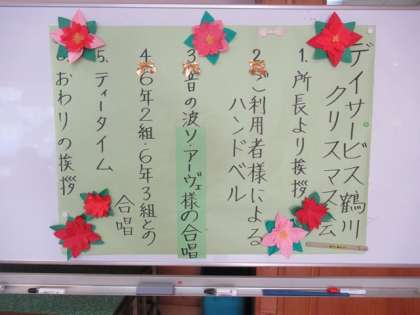 デイサービス鶴川
クリスマス会
1.所長より挨拶
2.ご利用者様による
ハンドベル
3.音の波ソ・アーヴェ様の合唱
4.6年2組・6年3組との
合唱
5.ティータイム
6.おわりの挨拶